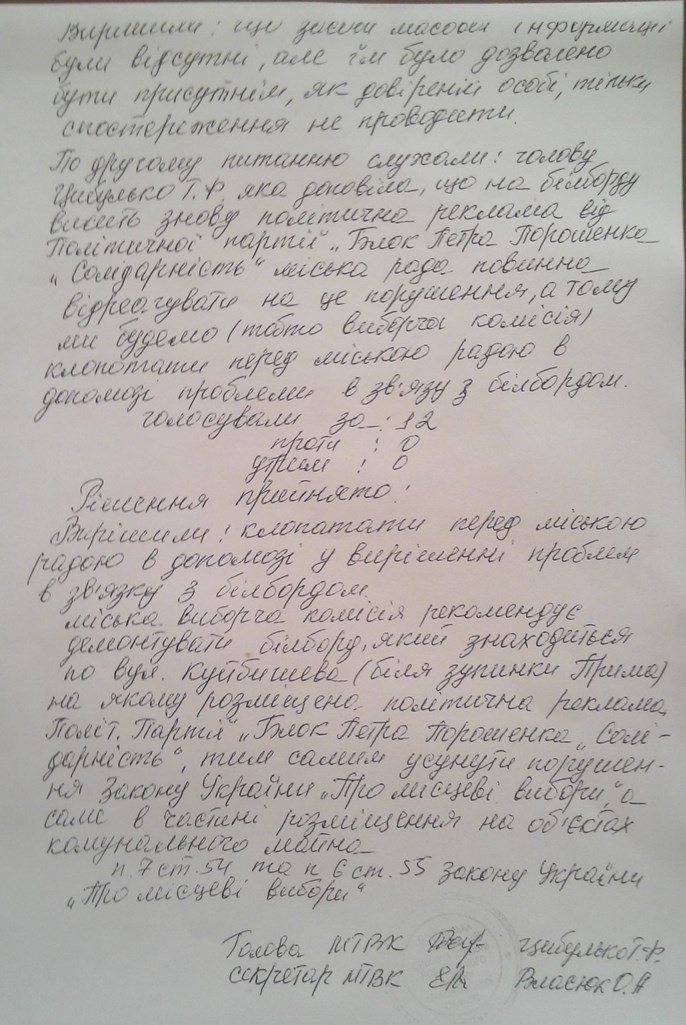 Вирішили: що засоби масової інформації
були відсутні, але їм було дозволено
бути присутнім, як довіреній особі, тільки
спостереження не проводити.
По другому питанню слухали: голову
Цибулько Т.Ф. яка доповіла, що на білборду
висить знову політична реклама від
Політичної партії „Блок Петра Порошенка
„Солідарність" міська рада повинна
відреагувати на це порушення, а тому
ми будемо (тобто виборча комісія)
клопотати перед міською радою в
допомозі проблеми в зв'язу з білбордом.
голосували за : 12
проти : 0
утрим : 0
Рішення прийнято!
Вирішили: клопатати перед міською
радою в допомозі у вирішенні проблем
в зв'язку з білбордом.
міська виборча комісія рекомендує
демонтувати білборд, який знаходиться
по вул. Куйбишева (біля зупинки Прима)
на якому розміщено політична реклама
Політ. Партії „Блок Петра Порошенка „Солі-
дарність", тим самим усунути порушен-
ня Закону України „Про місцеві вибори" а
саме в частині розміщення на об'єктах
комунального майна
п. 7 ст. 54 та п 6 ст. 55 закону України
„Про місцеві вибори"
Голова МТВК Цибулько Т.Ф.
секретар МТВК Власюк О.А